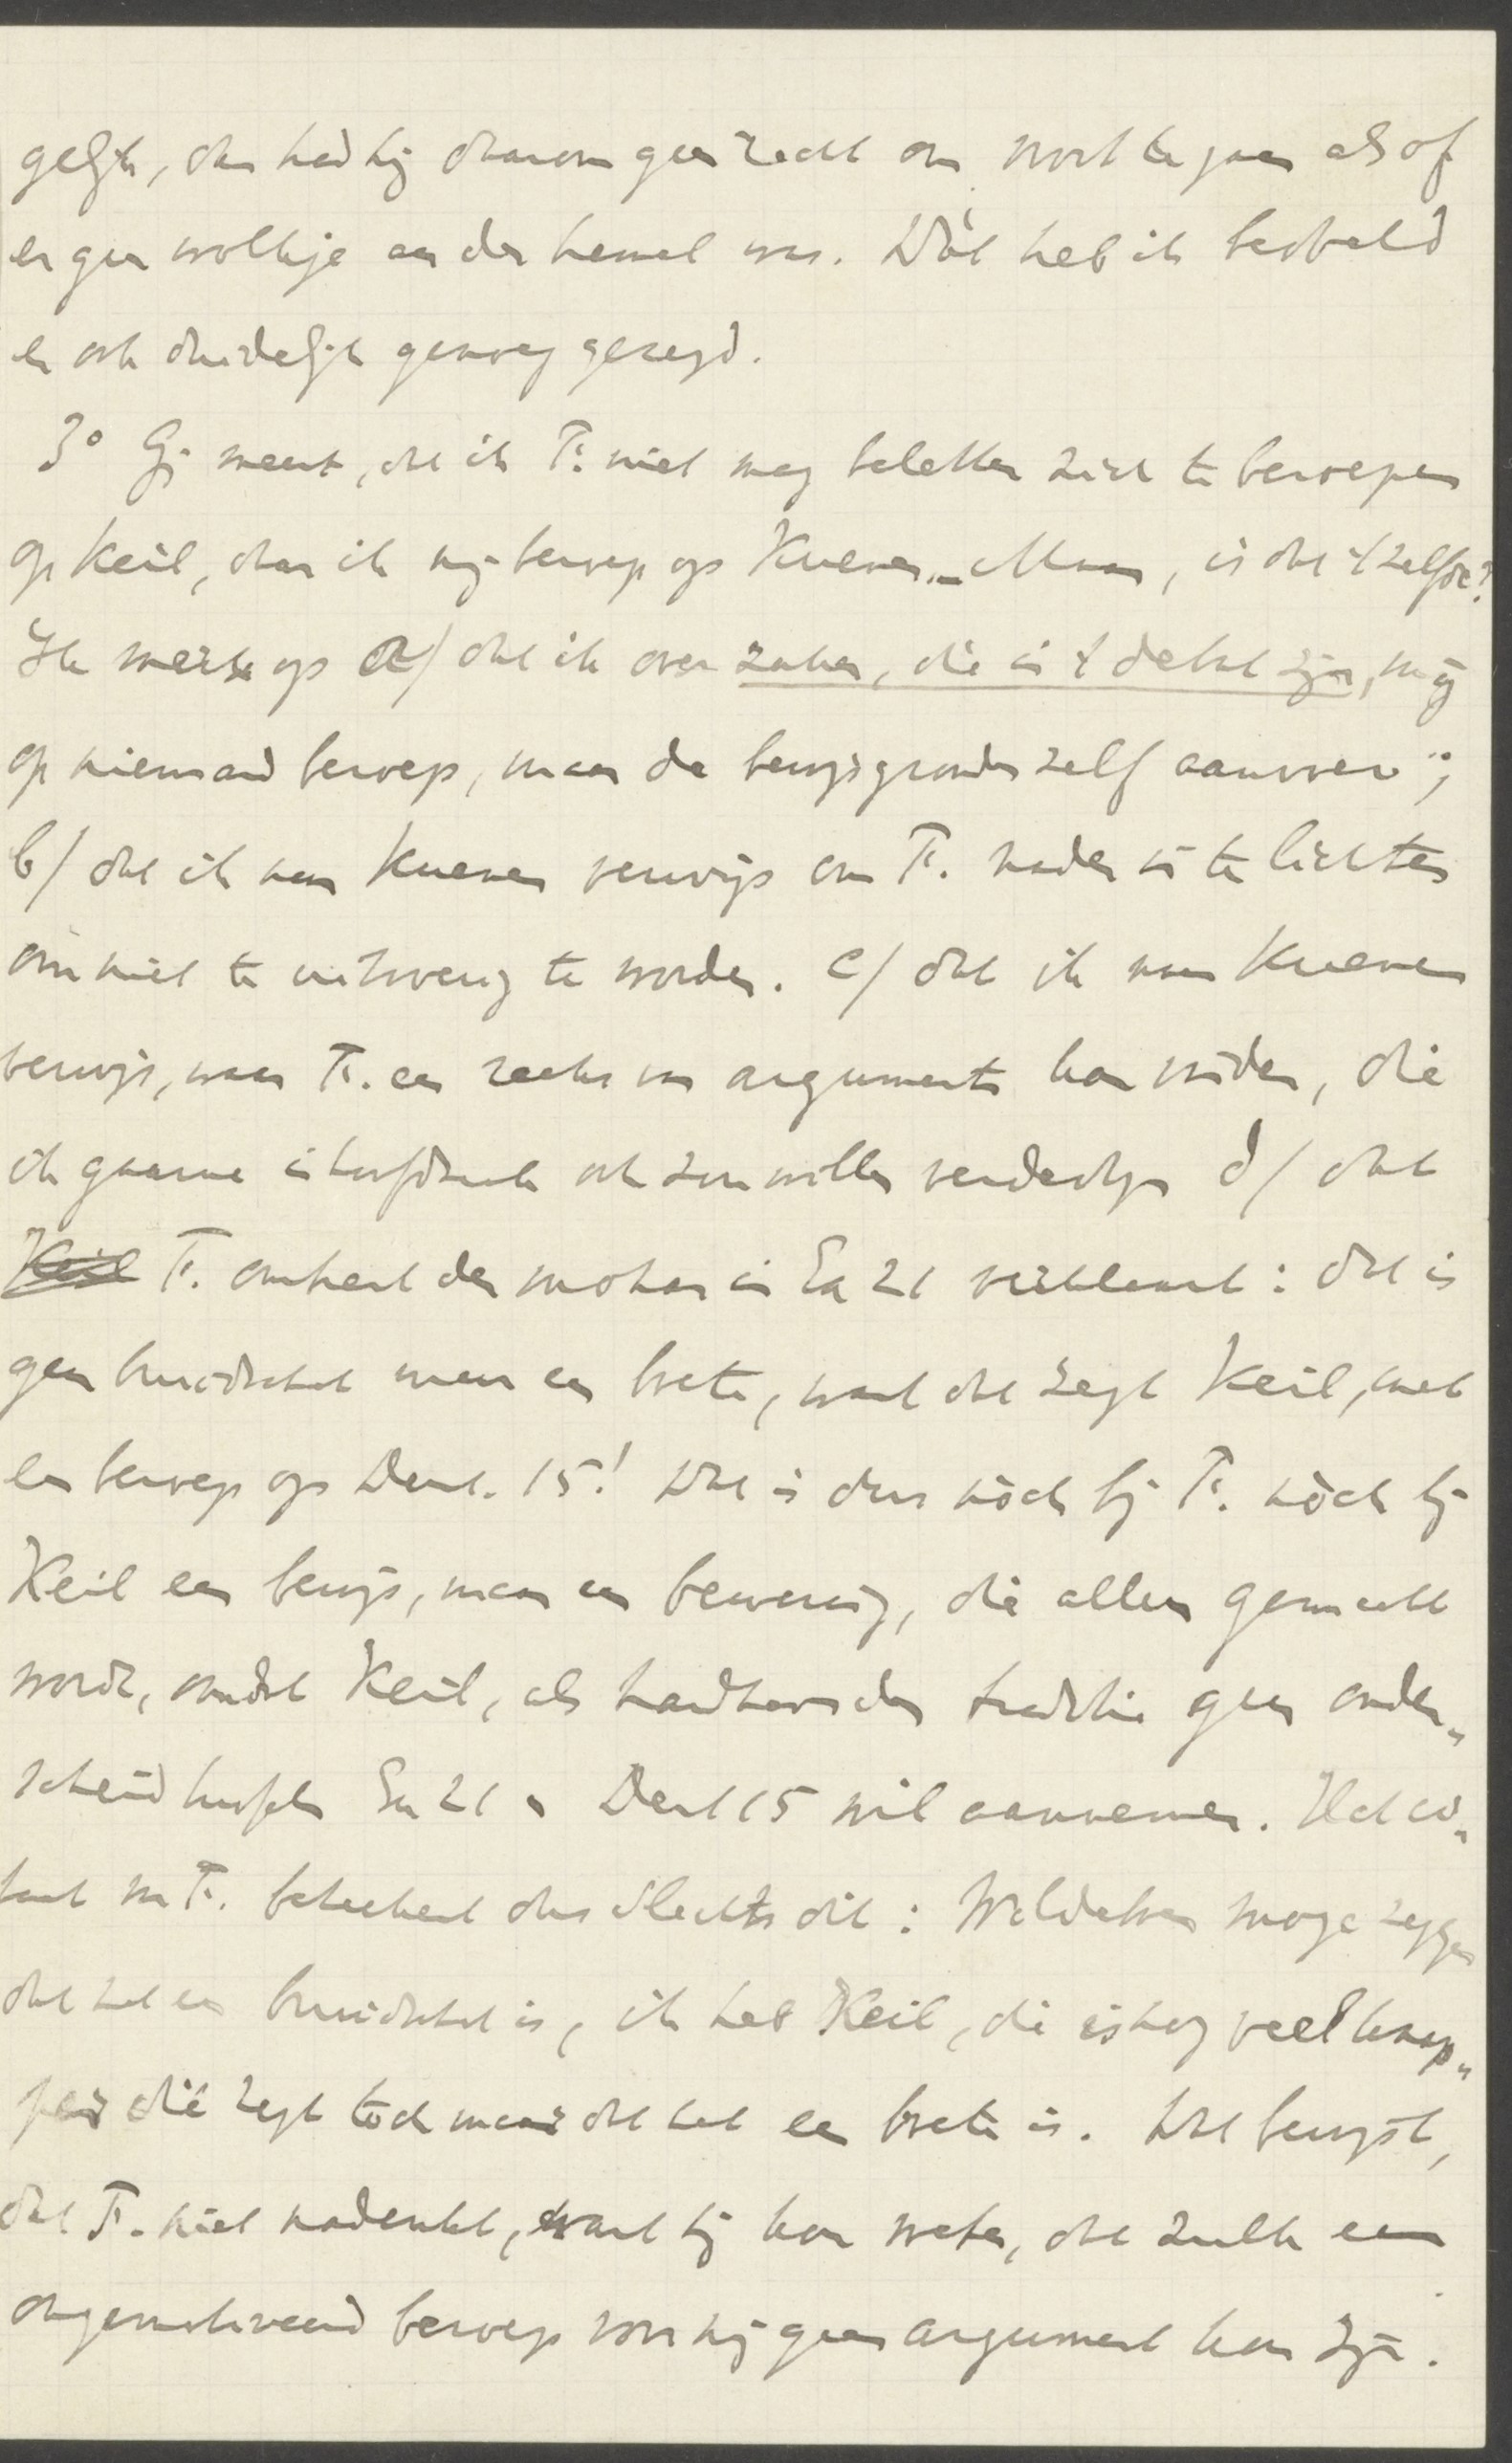 gelijk, dan had hij daarom geen recht om voort te gaan alsof
er geen wolkje aan den hemel was. Dàt heb ik bedoeld
en ook duidelijk genoeg gezegd.
3° Gij meent, dat ik F. niet mag beletten zich te beroepen
op Keil, daar ik mij beroep op Kuenen. – Maar, is dat 't zelfde?
Ik merk op a/ dat ik over zaken, die in 't debat zijn, mij
op niemand beroep, maar de bewijsgronden zelf aanvoer;
b/ dat ik naar Kuenen verwijs om F. nader in te lichten
om niet te uitvoerig te worden. c/ dat ik naar Kuenen
verwijs, waar F. een reeks van argumenten kan vinden, die
ik gaarne in hoofdzaak ook zou willen verdedigen d/ dat
Keil F. omtrent den mohar in Ex 21 verklaart: dat is
geen bruidschat maar een boete, want dat zegt Keil, met
een beroep op Deut. 15! Dat is dus nòch bij F. nòch bij
Keil een bewijs, maar een bewering, die alleen gemaakt
wordt, omdat Keil, als handhaver der traditie geen onder„
scheid tusschen Ex 21 en Deut 15 wil aannemen. Het ci„
taat van F. beteekent dus slechts dit: Wildeboer moge zeggen
dat het een bruidschat is, ik heb Keil, die is nog veel knap„
per die zegt toch maar dat het een boete is. Dat bewijst,
dat F. niet nadenkt, want hij kon weten, dat zulk een
ongemotiveerd beroep voor mij geen argument kan zijn.